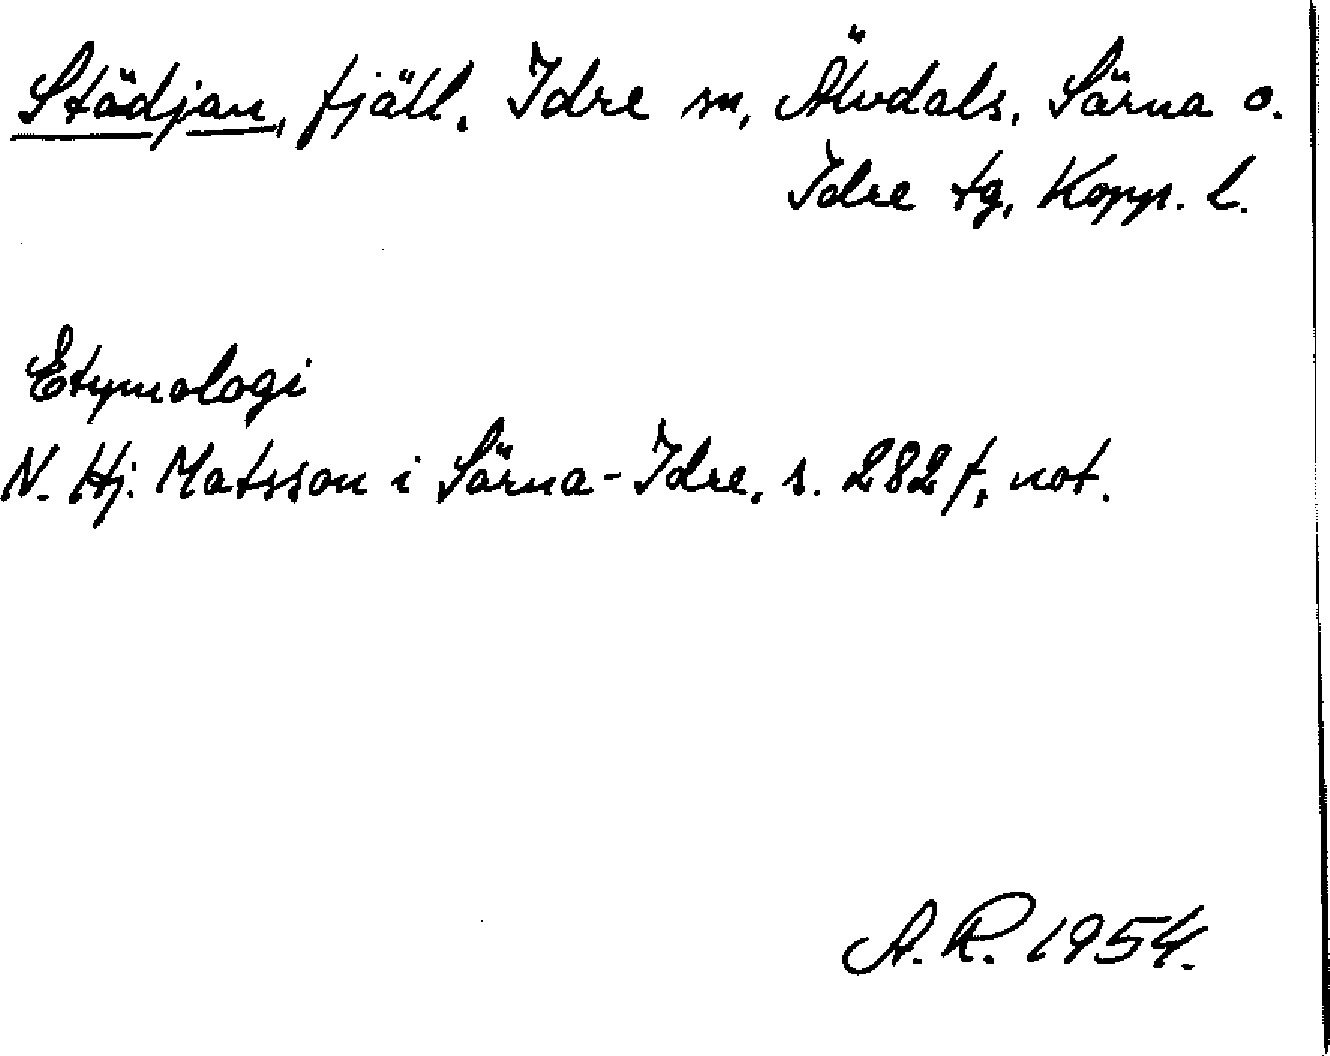 Städjan, fjäll, Idre sn, Älvdals, Särna o.
Idre tg, Kopp. l.
Etymologi
N. Hj. Matsson i Särna-Idre, s. 282 f, not.
A. R. 1954.